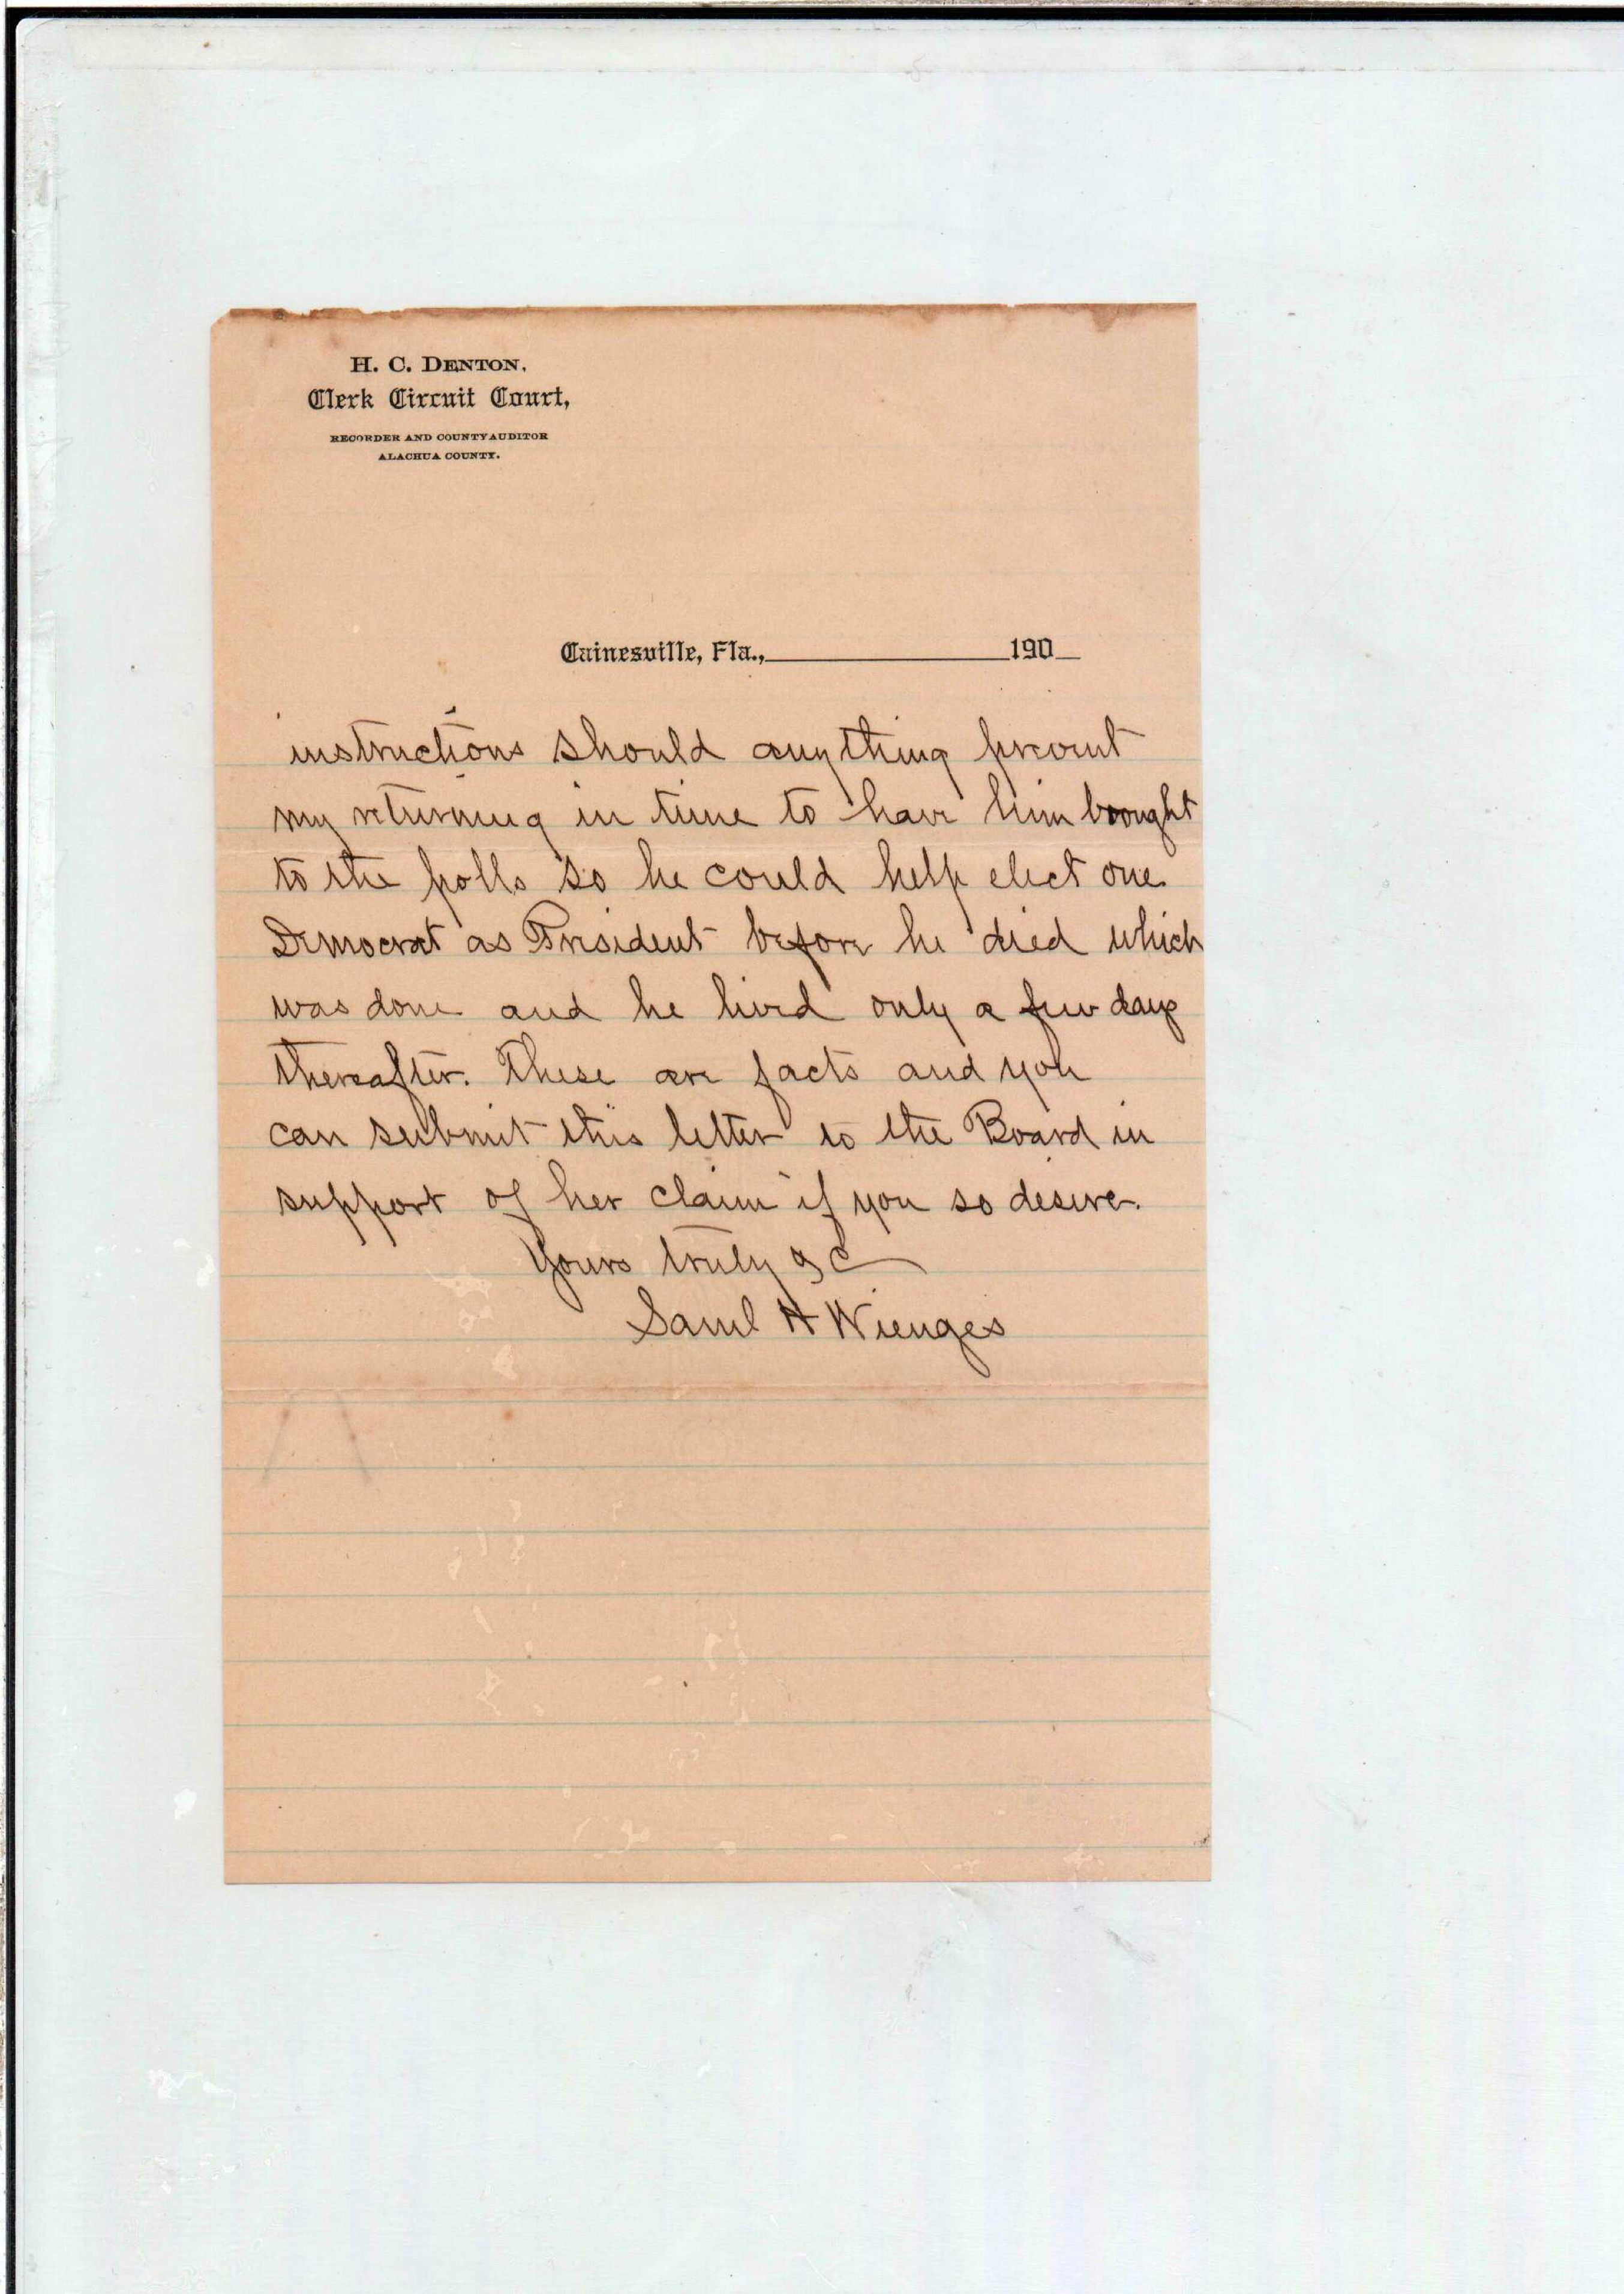 H. C. DENTON,
Clerk Circuit Court,
RECORDER AND COUNTY AUDITOR
ALACHUA COUNTY.
Gainesville, Fla., 190
instructions should anything prevent
my returning in time to have him brought
to the polls so he could help elect one
Democrat as President before he died which
was done and he lived only a few days
thereafter. These are facts and you
can submit this letter to the Board in
support of her claim if you so desire.
Yours truly &C
Saml H Wienges